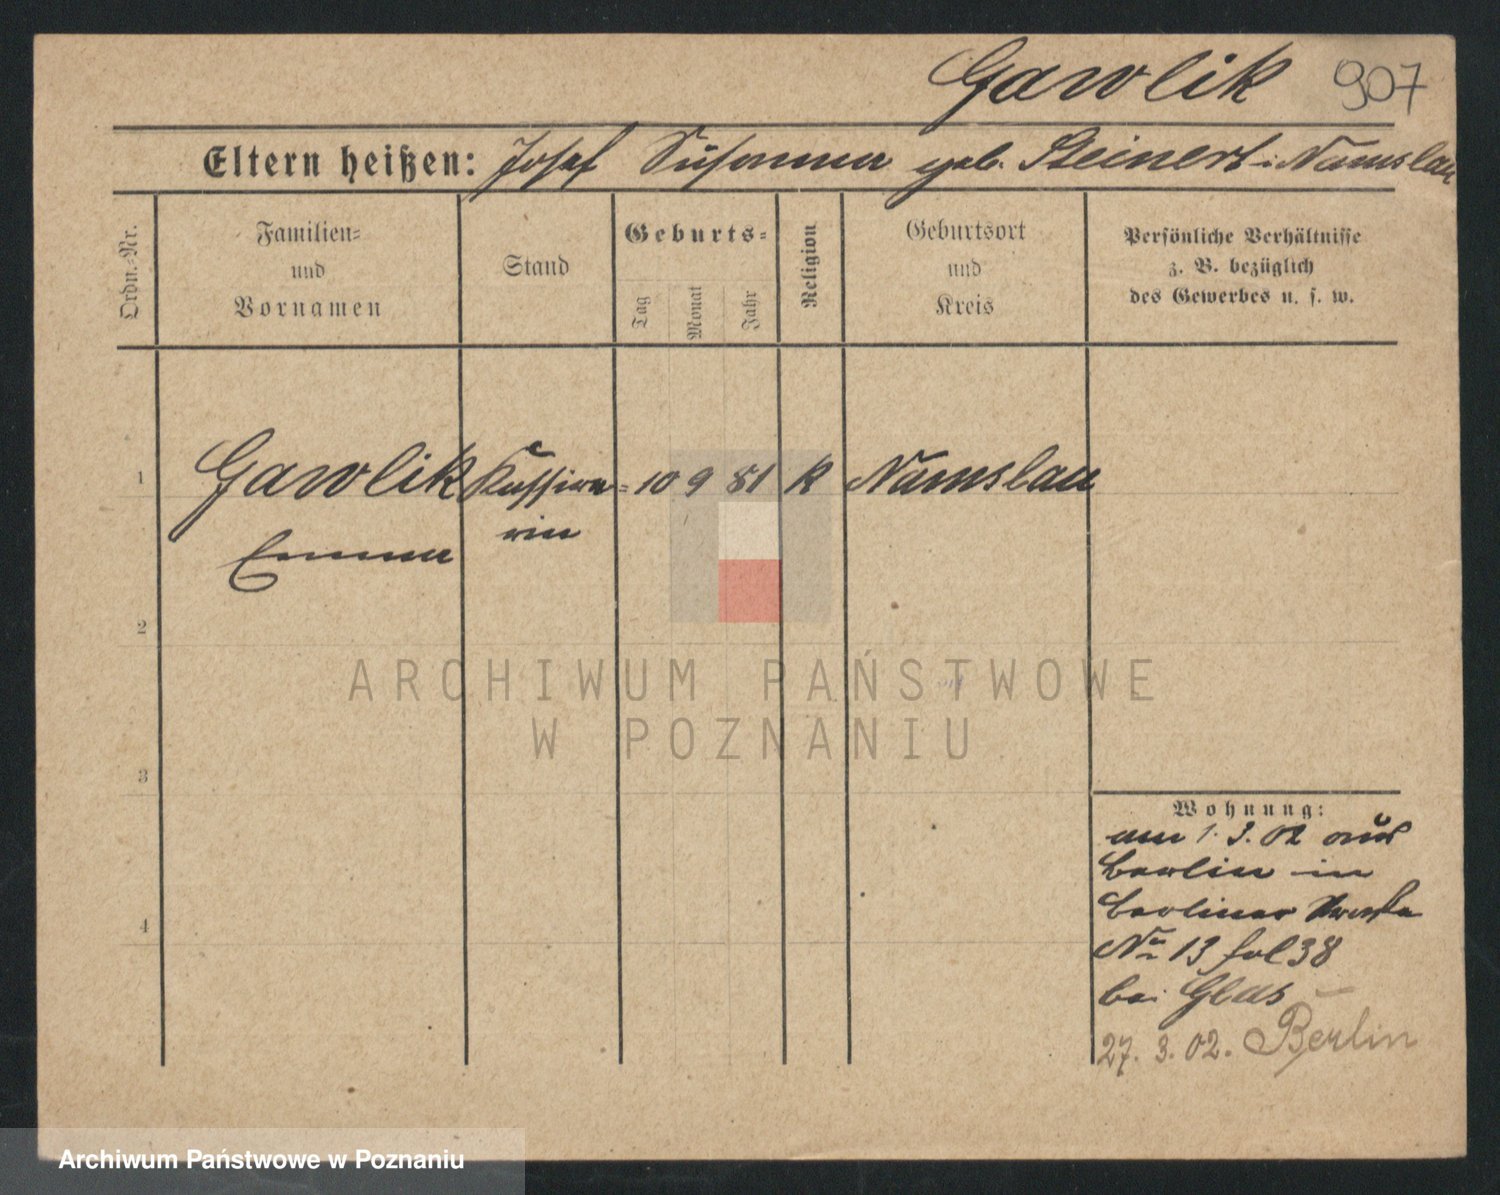 Gawlik 907
Eltern heißen: Josef Susanna geb. Steinert i. Namslau
Ordn.-Nr.
Familien-
und
Vornamen
Stand
Geburts-
Tag
Monat
Jahr
Religion
Geburtsort
und
Kreis
Persönliche Verhältnisse
z. B. bezüglich
des Gewerbes u. s. w.
1 Gawlik Kassire- 10 9 81 K Namslau
Emma rin
2
ARCHIWUM PAŃSTWOWE
W POZNANIU
3
Wohnung:
am 1.3.02 aus
Berlin in
Berliner Straße
No 13 fol 38
bei Glas
27. 3. 02. Berlin
4
Archiwum Państwowe w Poznaniu